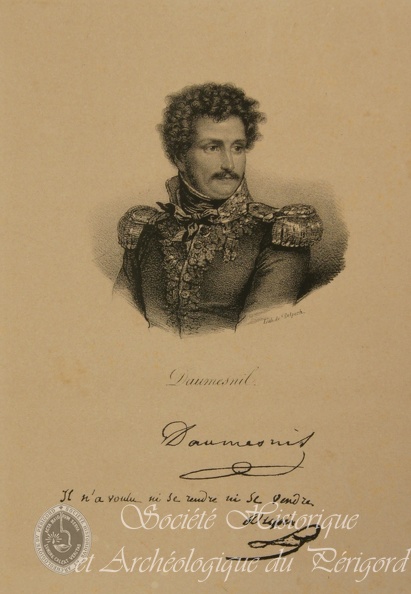 Lith. de Delpech
Daumesnil.
Daumesnil
Il n'a voulu ni se rendre ni se vendre
Dupin
Société Historique
et Archéologique du Périgord